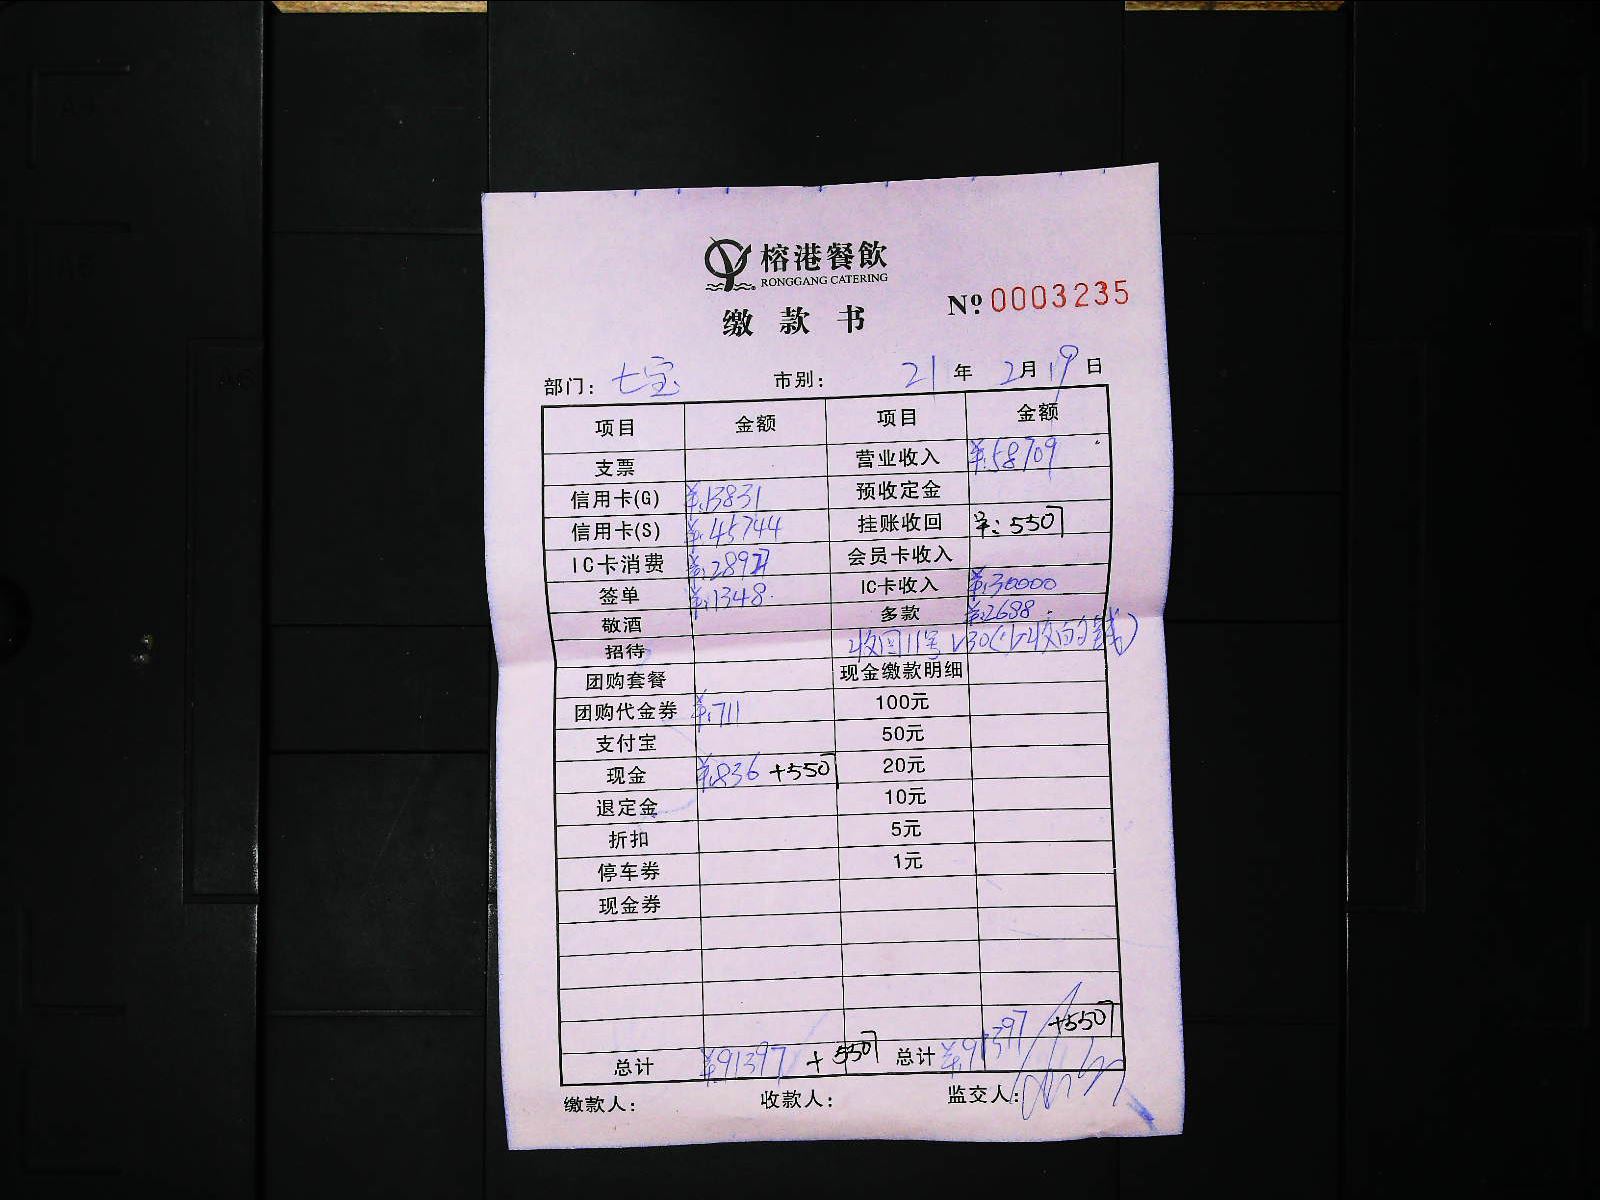 榕港餐飲
RONGGANG CATERING
缴款书
Nº 0003235
部门: 七宝 市别: 21年2月19日
项目 金额 项目 金额
支票 营业收入 ¥:58709
信用卡(G) ¥:13831 预收定金
信用卡(S) ¥:45744 挂账收回 ¥:550
IC卡消费 ¥:28927 会员卡收入
签单 ¥:1348 IC卡收入 ¥:30000
敬酒 多款 ¥:2688
招待 收回11号V30(少收的钱)
团购套餐 现金缴款明细
团购代金券 ¥:711 100元
支付宝 50元
现金 ¥:836 +550 20元
退定金 10元
折扣 5元
停车券 1元
现金券
总计 ¥:91397 +550 总计 ¥:91397 +550
缴款人: 收款人: 监交人: